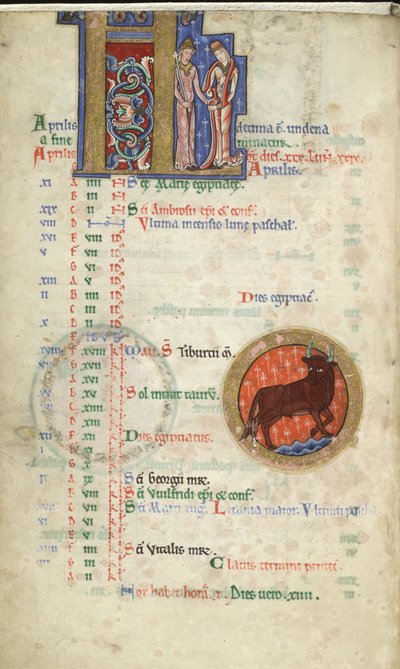 KL
Aprilis decima ē. undena
a fine minatur
Aprilis
Aprilis.
xi A iiii N Sc̄e Marie egiptiace.
B iii
xix C ii Sc̄i Ambrosii ep̄i & conf.
viii D Vltima incensio lune paschal.
xvi E viii id
v F vii id
G vi
xiii A v
ii B iiii Dies egiptiac.
C iii
x D ii
E
xviii F xviii Mai. S Tiburcii m̄.
vii G xvii
A xvi
B xv Sol intrat taurū.
C xiiii
D xiii
xii E xii Dies egiptiacus.
i F xi
G x
ix A ix Sc̄i Georgii mr̄.
B viii Sc̄i Vuilfridi ep̄i & conf.
C vii Sc̄i Marci eug. Letania maior. Vltimū pascha
vi D vi
E v
F iiii Sc̄i Vitalis mr̄.
G iii Clauis termini
A ii
Nox habet horas x. Dies uero .xiiii.